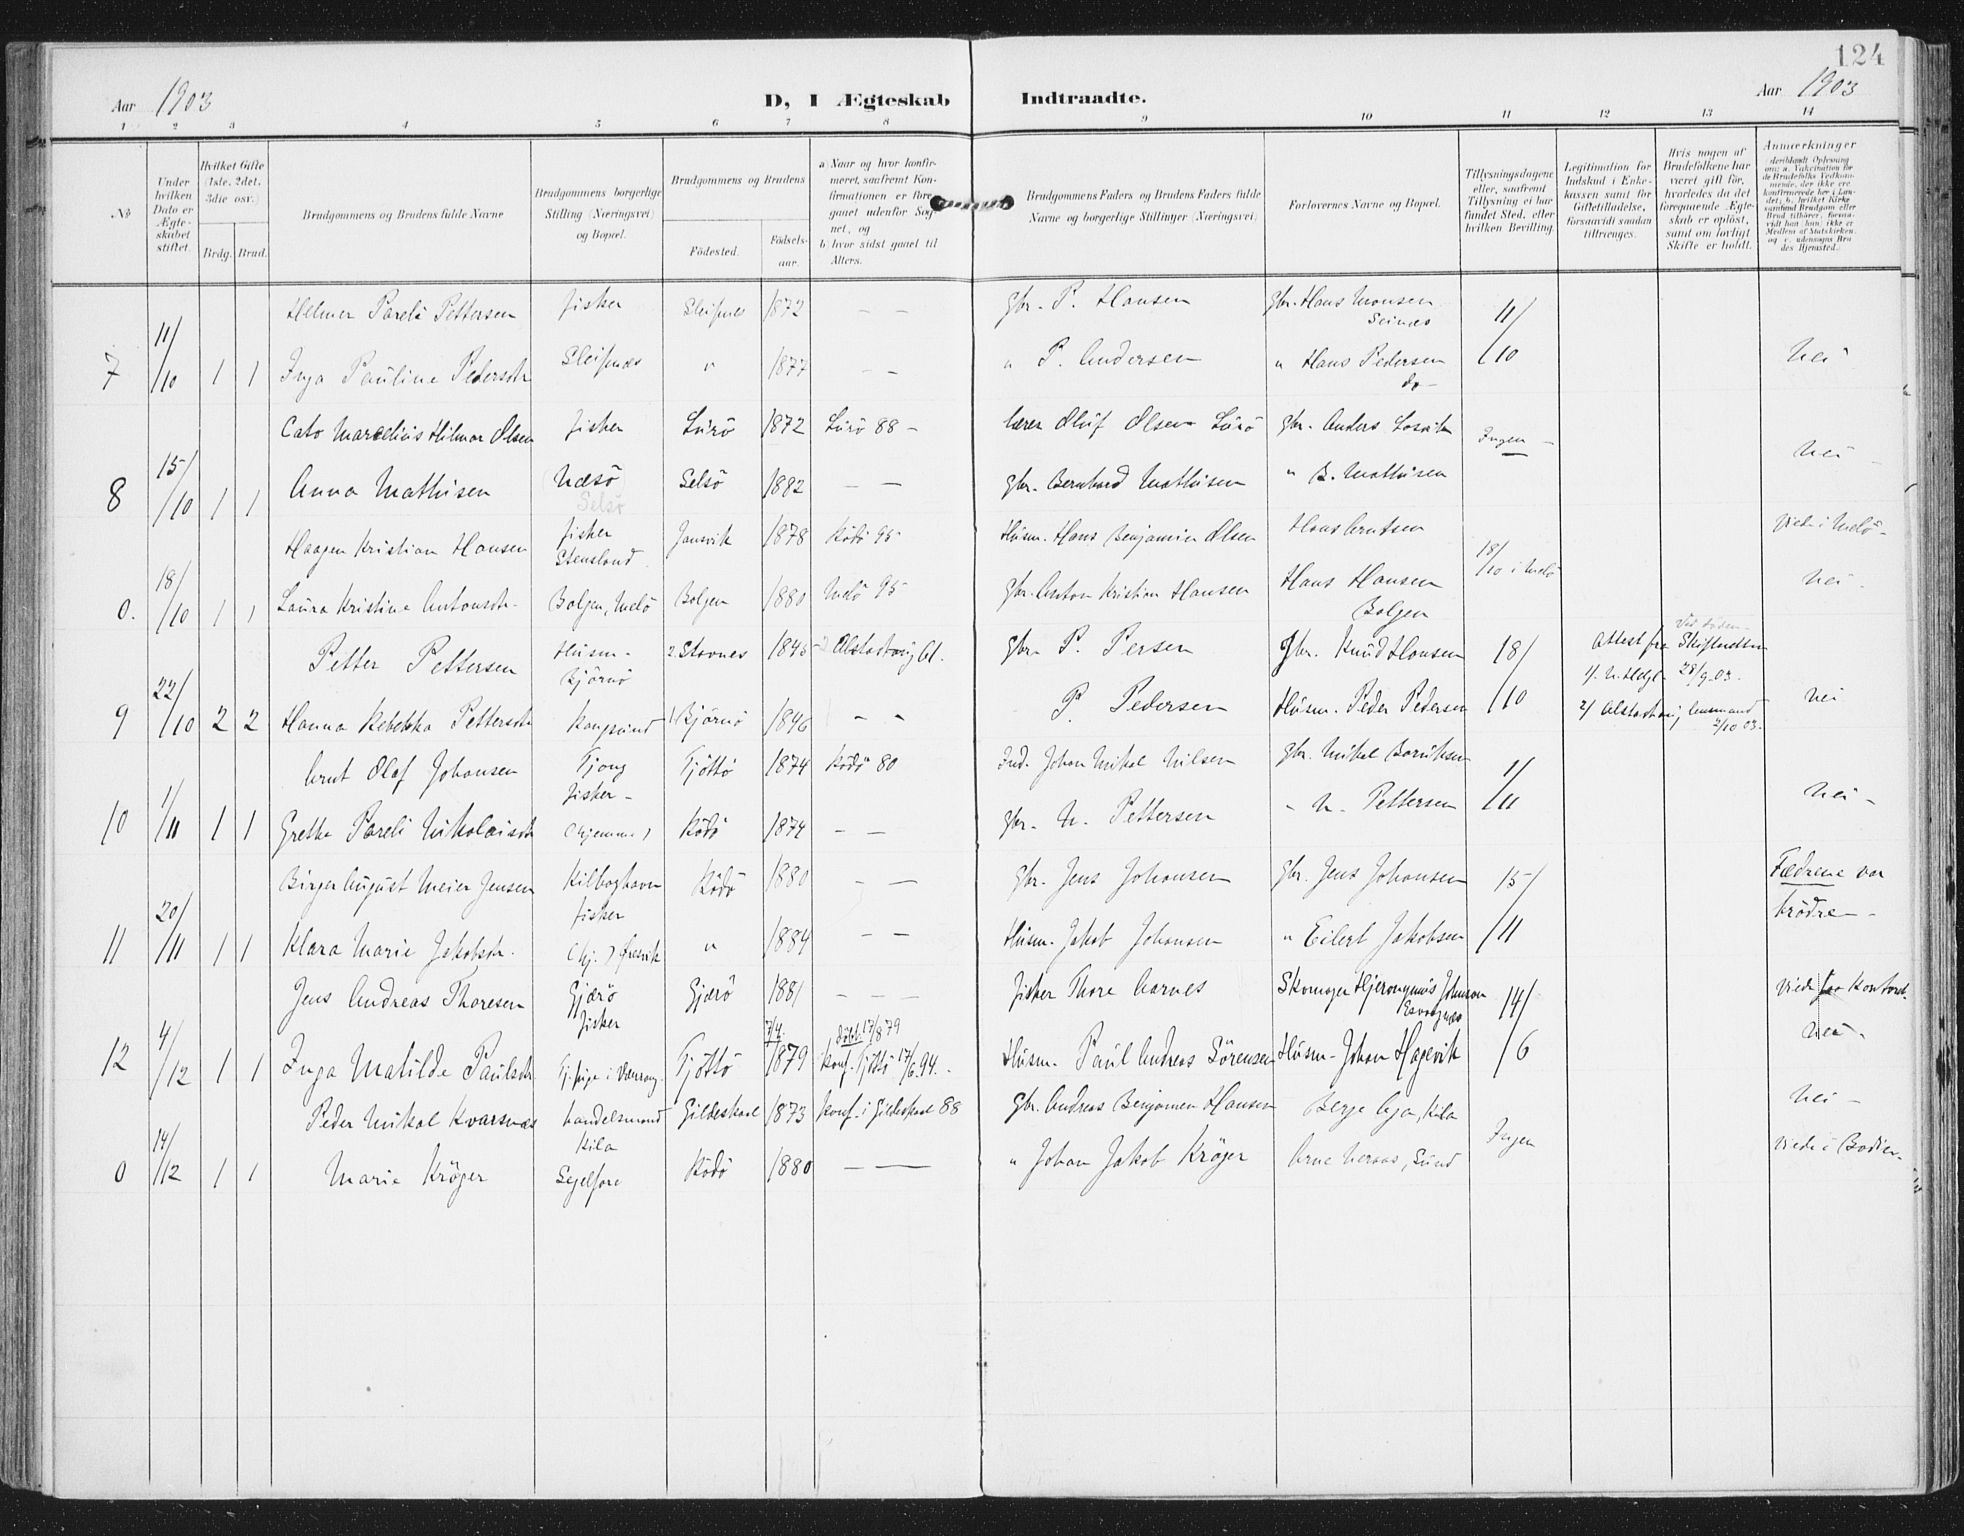 124
Aar 1903 D, I Ægteskab Indtraadte. Aar 1903
1 2 3 4 5 6 7 8 9 10 11 12 13 14
No
Under hvilken Dato er Ægteskabet stiftet.
Hvilket Gifte (1ste, 2det, 3die osv.)
Brdg. Brud.
Brudgommens og Brudens fulde Navne
Brudgommens borgerlige Stilling (Næringsvei) og Bopæl.
Brudgommens og Brudens
Födested. Födselsaar.
a Naar og hvor konfirmeret, saafremt Konfirmationen er foregaaet udenfor Sognet, og
b) hvor sidst gaaet til Alters.
Brudgommens Faders og Brudens Faders fulde Navne og borgerlige Stillinger (Næringsvei).
Forlovernes Navne og Bopæl.
Tillysningsdagene eller, saafremt Tillysning ei har fundet Sted, efter hvilken Bevilling.
Legitimation for Indskud i Enkekassen samt for Giftetilladelse, forsaavidt saadan tiltrænges.
Hvis nogen af Brudefolkene har været gift før, hvorledes da det foregaaende Ægteskab er opløst, samt om lovligt Skifte er holdt.
Anmærkninger
Helmer Pareli Pettersen fisker Sleipnes 1872 — — gbr. P. Hansen gbr. Hans Monsen Seines 11/
7 11/10 1 1 Inga Pauline Pedersdtr Sleipnæs " 1877 — — " P. Andersen " Hans Pedersen do— /10 Nei
Cato Marcelius Hilmar Olsen fisker Lurö 1872 Lurö 88 — lærer Oluf Olsen Lurö gbr. Anders Losvik Ingen —
8 15/10 1 1 Anna Mathisen Næsö Selsö Selsö 1882 — — gbr. Bernhard Mathisen " B. Mathisen Nei —
Haagen Kristian Hansen fisker Stensland Jansvik 1878 Rödö 95 Husm. Hans Benjamin Olsen Hans Arntsen 18/10 i Melö Viede i Melö —
0. 18/10 1 1 Laura Kristine Antonsdtr. Bolgen, Melö Bolgen 1880 Melö 95 gbr. Anton Kristian Hansen Hans Hansen Bolgen Nei —
Petter Pettersen Husm — Björnö 2 Stavnes 1845 gbr. P. Persen Gbr. Knud Hansen 18/ Attest fra Skifteretten
1/ N. Helgl 28/9 03.
9 22/10 2 2 Hanna Rebekka Pettersdtr Kangsund 1 Björnö 1846 — — P. Pedersen Husm. Peder Pedersen /10 2/ Alstadhaug lensmand 2/10 03. Nei
Arnt Olaf Johansen Tjong fisker — Tjöttö 1874 Rödö 80 Ind. Johan Mikal Nilsen gbr. Mikal Bariksen 1/
10 1/11 1 1 Grethe Pareli Nikolaisdtr (hjemme) Rödö 1874 — — gbr. N. Pettersen — N. Pettersen /11 Nei —
Birger August Meier Jensen Kilboghavn fisker Rödö 1880 — — gbr. Jens Johansen gbr. Jens Johansen 15/ Fædrene var brödre —
11 20/11 1 1 Klara Marie Jakobsdtr. (hj.) Öresvik " 1884 — — Husm. Jakob Johansen " Eilert Jakobsen /11
Jens Andreas Thoresen Gjærö fisker Gjærö 1881 — — — fisker Thore Aarnes Skomager Hjeronymus Johnson 14/ Viede paa Kontoret.
12 4/12 1 1 Inga Matilde Paulsdtr Tj. pige i Værang. Tjöttö 7/4 1879 döbt 17/8 79 konf. Tjöttö 17/6 94. Husm. Paul Andreas Sörensen Husm. Johan Hagevik /6 Nei —
Peder Mikal Kvarsnæs handelsmand Kila Gildeskaal 1873 konf. i Gildeskaal 88 Gbr. Andreas Benjamin Hansen Berge Aga, Kila Ingen Nei —
0 14/12 1 1 Marie Kröger Segelfore Rödö 1880 — — " Johan Jakob Kröger Arne Neraas, Sund Viede i Bodin —